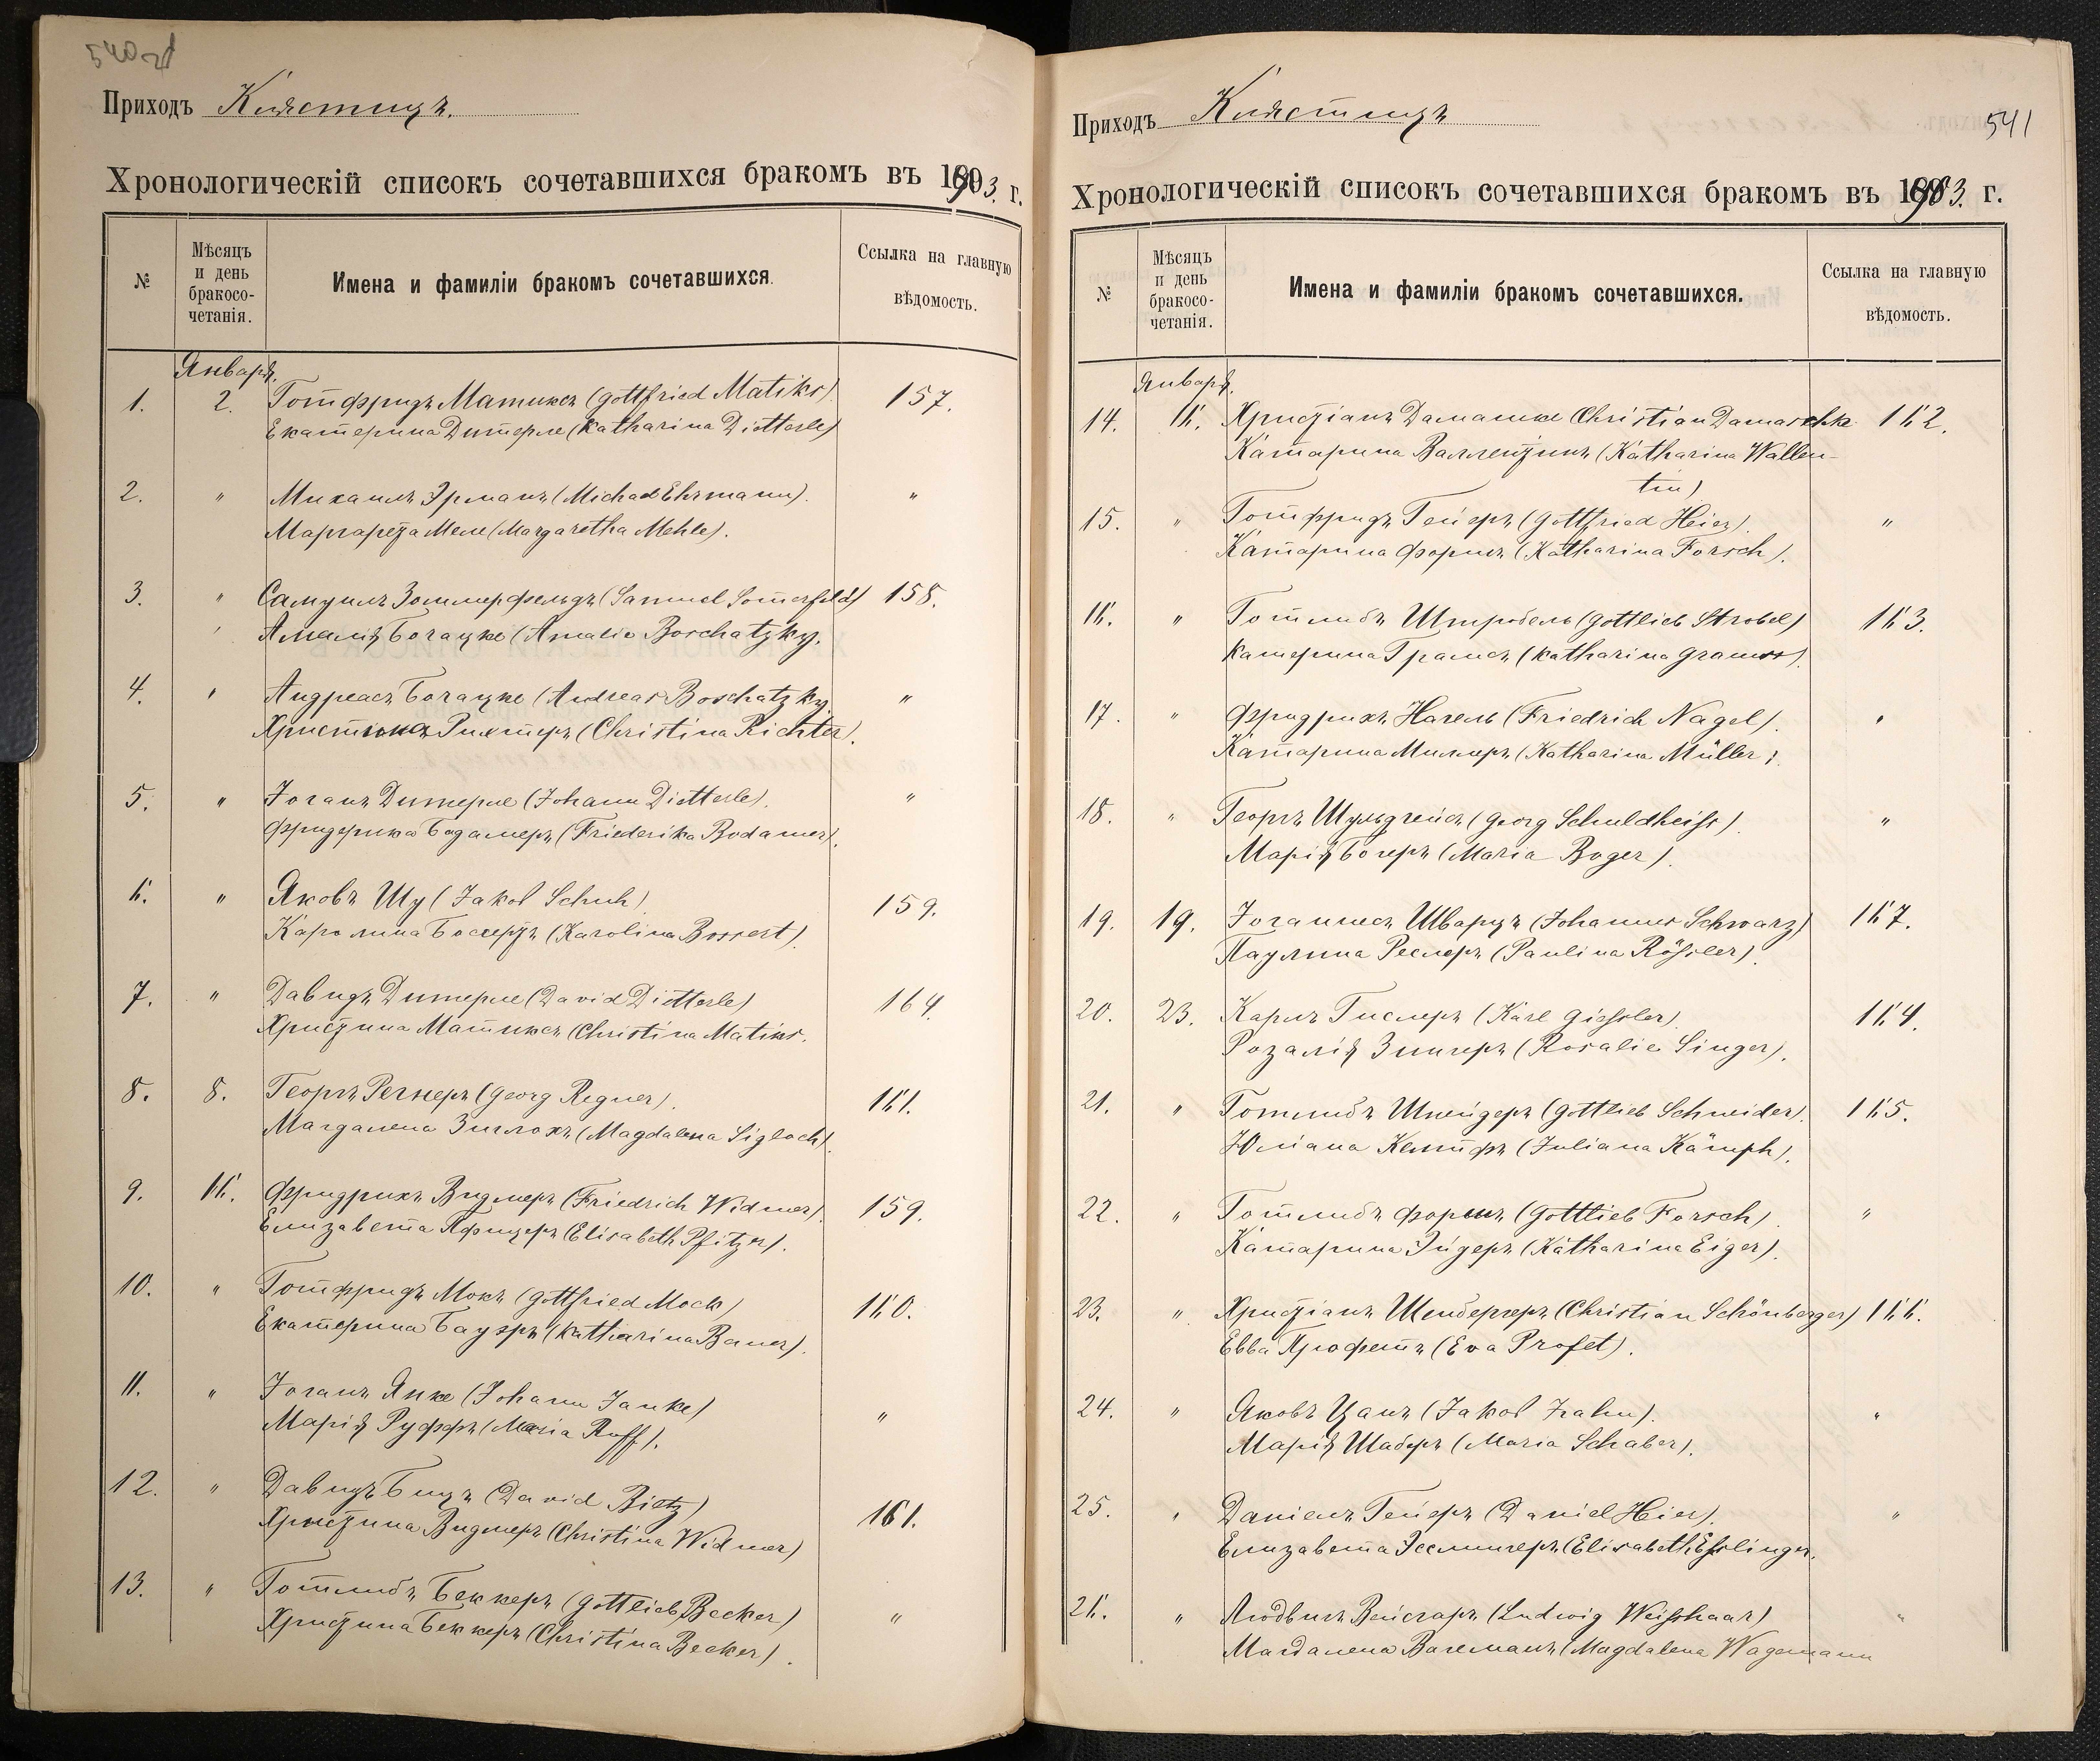 540 об
Приходъ Клястицъ.
Хронологическій списокъ сочетавшихся бракомъ въ 1903. г.
№
Мѣсяцъ и день бракосо-четанія.
Имена и фамиліи бракомъ сочетавшихся.
Ссылка на главную вѣдомость.
Января.
1. 2. Готфридъ Матиксъ (Gottfried Matiks). 157.
Екатерина Дитерле (Katharina Dietterle)
2. " Михаилъ Эрманъ (Michael Ehrmann). "
Маргарета Меле (Margaretha Mehle).
3. " Самуилъ Зоммерфельдъ (Samuel Somerfeld) 158.
' Амалія Богацке (Amalie Boschatzky.
4. " Андреасъ Богацке (Andreas Boschatzky. "
Христина Рихтеръ (Christina Richter).
5. " Іоганъ Дитерле (Johann Dietterle). "
Фридерика Бодамеръ (Friederika Bodamer).
6. " Яковъ Шу (Jakob Schuh) 159.
Каролина Боссертъ (Karolina Bossert).
7. " Давидъ Дитерле (David Dietterle) 164.
Христина Матиксъ (Christina Matiks.
8. 8. Георгъ Регнеръ (Georg Regner). 161.
Магдалена Зиглохъ (Magdalena Sigloch).
9. 16. Фридрихъ Видмеръ (Friedrich Widmer). 159.
Елизавета Пфицеръ (Elisabeth Pfitzer).
10. " Готфридъ Мокъ (Gottfried Mock) 160.
Екатерина Бауэръ (Katharina Bauer).
11. " Іоганъ Янке (Johann Janke) "
Марія Руффъ (Maria Ruff).
12. " Давидъ Бицъ (David Bietz) 161.
Христина Видмеръ (Christina Widmer)
13. " Готлибъ Беккеръ (Gottlieb Becker) "
Христина Беккеръ (Christina Becker).
541
Приходъ Клястицъ
Хронологическій списокъ сочетавшихся бракомъ въ 1903. г.
№
Мѣсяцъ и день бракосо-четанія.
Имена и фамиліи бракомъ сочетавшихся.
Ссылка на главную вѣдомость.
Января.
14. 16. Христіанъ Дамашке Christian Damaschke 162.
Катарина Валлентинъ (Katharina Wallen-
tin)
15. " Готфридъ Гейеръ (Gottfried Heier). "
Катарина Форшъ (Katharina Forsch).
16. " Готлибъ Штробель (Gottlieb Strobel) 163.
Катерина Грамсъ (Katharina Gramss).
17. " Фридрихъ Нагель (Friedrich Nagel). "
Катарина Миллеръ (Katharina Müller).
18. " Георгъ Шульдгейсъ (Georg Schuldheiss). "
Марія Богеръ (Maria Boger).
19. 19. Іоганнесъ Шварцъ (Johannes Schwarz) 167.
Паулина Реслеръ (Paulina Rössler).
20. 23. Карлъ Гислеръ (Karl Giessler). 164.
Розалія Зингеръ (Rosalie Singer).
21. " Готлибъ Шнейдеръ (Gottlieb Schneider). 165.
Юліана Кемпфъ (Juliana Kämpf).
22. " Готлибъ Форшъ (Gottlieb Forsch). "
Катарина Эйгеръ (Katharina Eiger).
23. " Христіанъ Шенбергеръ (Christian Schönberger) 166.
Евва Профетъ (Eva Profet).
24. " Яковъ Цанъ (Jakob Zahn). "
Марія Шаберъ (Maria Schaber).
25. " Даніелъ Гейеръ (Daniel Heier). "
Елизавета Эсслингеръ (Elisabeth Esslinger.
26. " Людвигъ Вейсгаръ (Ludwig Weisshaar) "
Магдалена Вагеманъ (Magdalena Wagemann